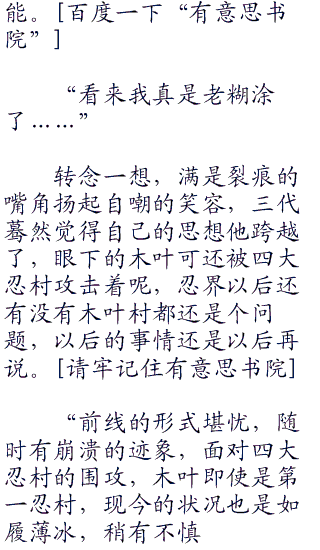 能。[百度一下“有意思书
院”]
“看来我真是老糊涂
了……”
转念一想，满是裂痕的
嘴角扬起自嘲的笑容，三代
蓦然觉得自己的思想他跨越
了，眼下的木叶可还被四大
忍村攻击着呢，忍界以后还
有没有木叶村都还是个问
题，以后的事情还是以后再
说。[请牢记住有意思书院]
“前线的形式堪忧，随
时有崩溃的迹象，面对四大
忍村的围攻，木叶即使是第
一忍村，现今的状况也是如
履薄冰，稍有不慎